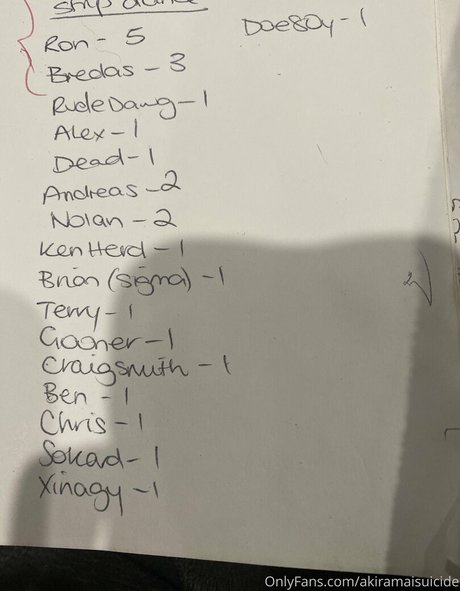 strip dance
Ron - 5
Bredas - 3
RudeDawg - 1
Alex - 1
Dead - 1
Andreas - 2
Nolan - 2
Ken Herd - 1
Brian (sigma) - 1
Terry - 1
Gooner - 1
Craigsmith - 1
Ben - 1
Chris - 1
Sokad - 1
Xinagy - 1
DaeSoy - 1
OnlyFans.com/akiramaisuicide